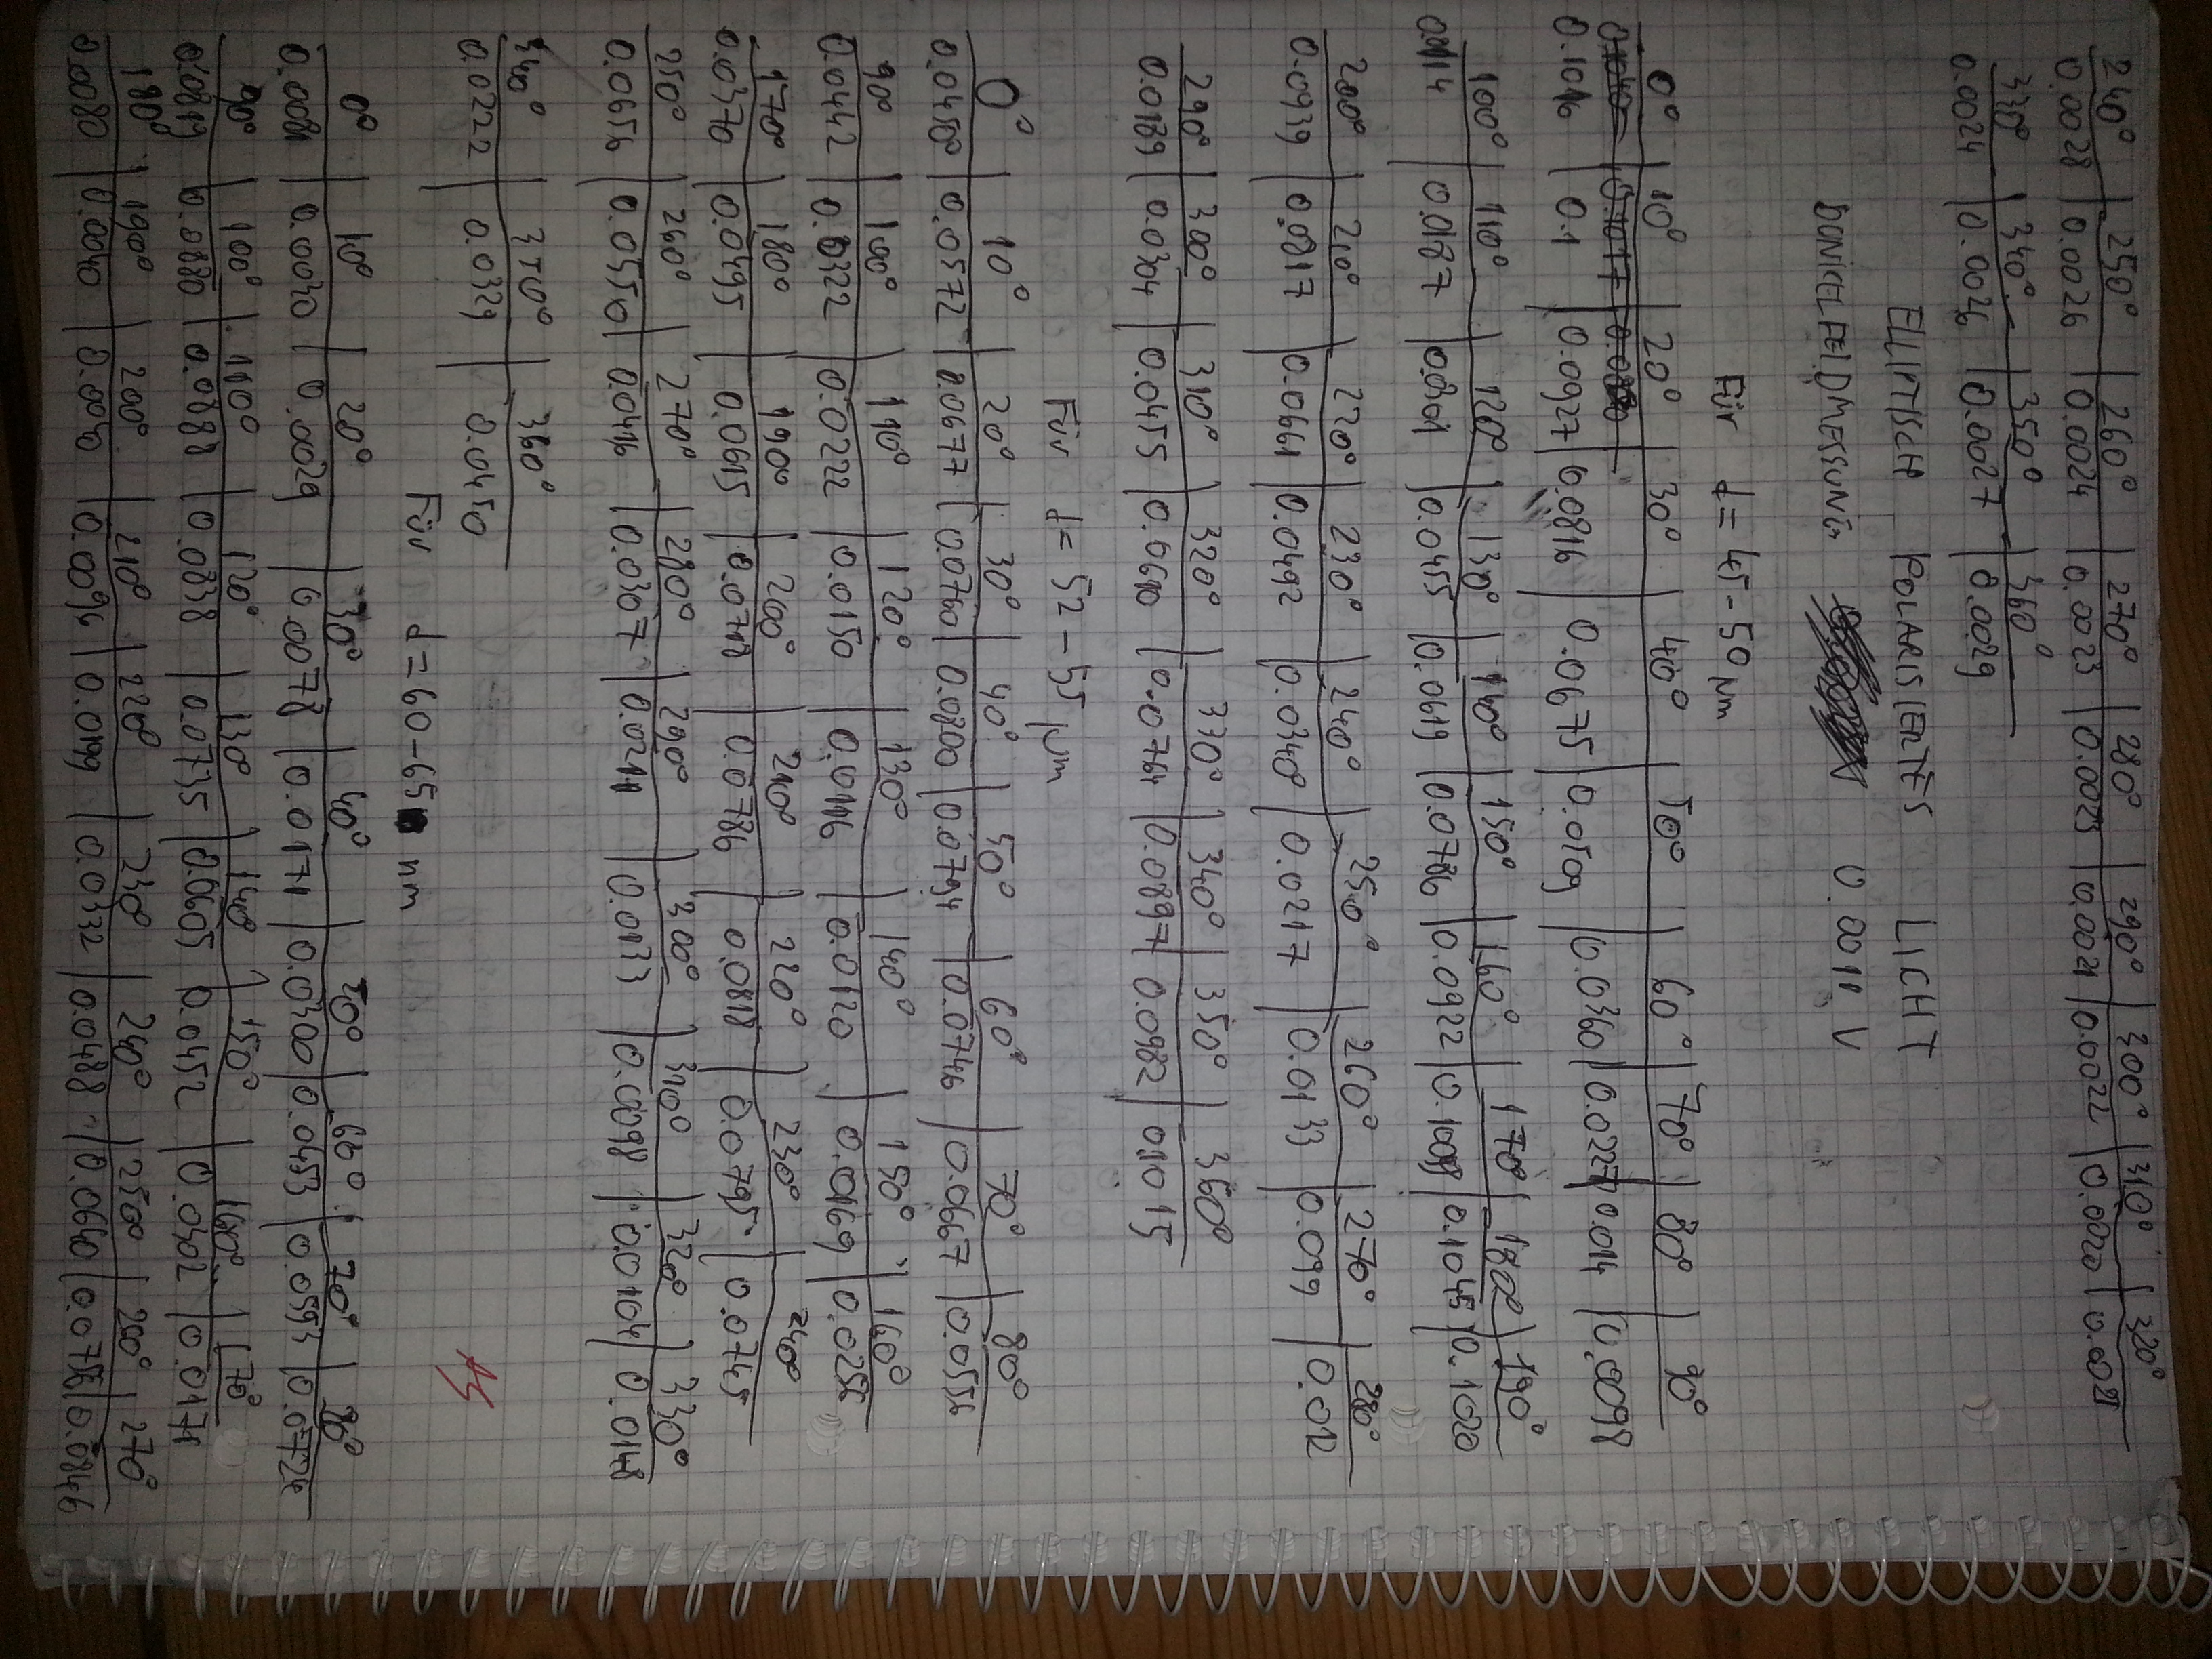 240° 250° 260° 270° 280° 290° 300° 310° 320°
0.0028 0.0026 0.0024 0.0023 0.0023 0.0021 0.0022 0.0020 0.0021
330° 340° 350° 360°
0.0024 0.0026 0.0027 0.0029
ELLIPTISCH POLARISIERTES LICHT
DUNKELFELDMESSUNG 0.0011 V
Für d = 45 - 50 µm
0° 10° 20° 30° 40° 50° 60° 70° 80° 90°
0.1040 0.1017
0.1016 0.1 0.0927 0.0816 0.0675 0.0509 0.0360 0.0227 0.014 0.0098
100° 110° 120° 130° 140° 150° 160° 170° 180° 190°
0.0114 0.0187 0.0301 0.0455 0.0619 0.0786 0.0922 0.1045 0.1020
200° 210° 220° 230° 240° 250° 260° 270° 280°
0.0939 0.0817 0.0661 0.0492 0.0340 0.0217 0.0133 0.099 0.012
290° 300° 310° 320° 330° 340° 350° 360°
0.0189 0.0304 0.0455 0.0610 0.0764 0.0897 0.0982 0.1015
Für d = 52 - 55 µm
0° 10° 20° 30° 40° 50° 60° 70° 80°
0.0450 0.0572 0.0677 0.0760 0.0800 0.0794 0.0746 0.0667 0.0556
90° 100° 110° 120° 130° 140° 150° 160°
0.0442 0.0322 0.0222 0.0150 0.0116 0.0120 0.0169 0.0256
170° 180° 190° 200° 210° 220° 230° 240°
0.0370 0.0495 0.0615 0.0718 0.0786 0.0818 0.0795 0.0745
250° 260° 270° 280° 290° 300° 310° 320° 330°
0.0656 0.0550 0.0416 0.0307 0.0211 0.0133 0.0098 0.0104 0.0148
340° 350° 360°
0.0222 0.0329 0.0450
AS
Für d = 60 - 65 nm
0° 10° 20° 30° 40° 50° 60° 70° 80°
0.0081 0.0030 0.0029 0.0078 0.0171 0.0300 0.0453 0.0593 0.0724
90° 100° 110° 120° 130° 140° 150° 160° 170°
0.0819 0.0880 0.0888 0.0838 0.0735 0.0605 0.0452 0.0302 0.0171
180° 190° 200° 210° 220° 230° 240° 250° 260° 270°
0.0080 0.0040 0.0040 0.0096 0.0199 0.0332 0.0488 0.0640 0.0756 0.0846